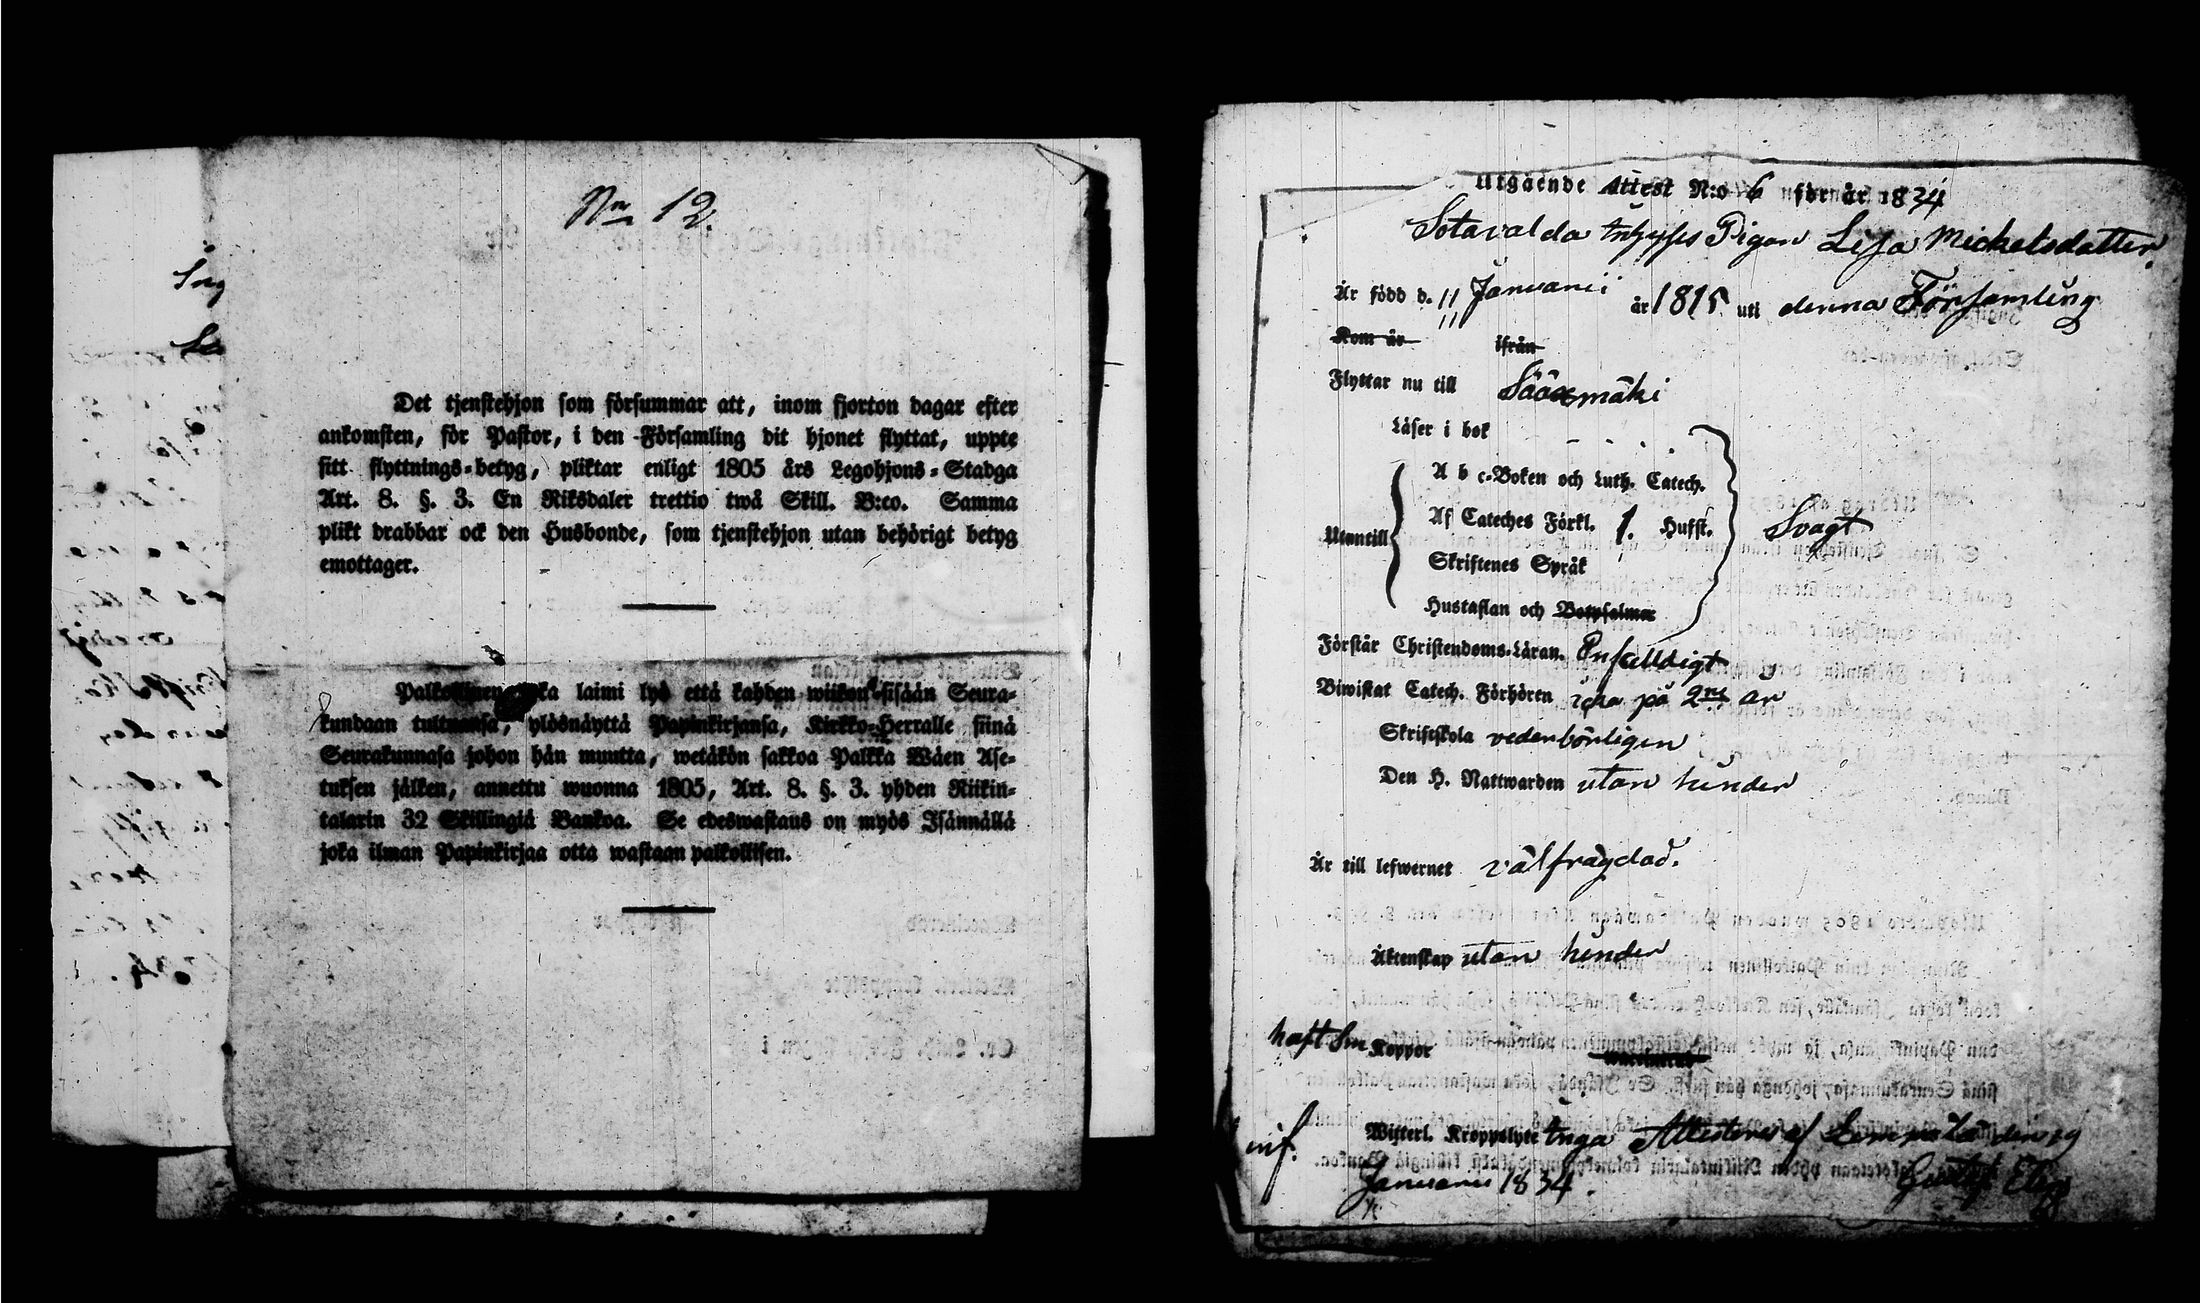 Nr 12.
Det tjenstehjon som försummar att, inom fjorton dagar efter
ankomsten, för Pastor, i den Församling dit hjonet flyttat, uppte
sitt flyttnings-betyg, pliktar enligt 1805 års Legohjons-Stadga
Art. 8. §. 3. En Riksdaler trettio twå Skill. B:co. Samma
plikt drabbar ock den Husbonde, som tjenstehjon utan behörigt betyg
emottager.
Palkollinen joka laimi lyö että kahden wiikon sisään Seura-
kundaan tultuansa, ylösnäyttä Papinkirjansa, Kirkko-Herralle siinä
Seurakunnasa johon hän muutta, wetäkön sakkoa Palkka Wäen Ase-
tuksen jälken, annettu wuonna 1805, Art. 8. §. 3. yhden Riikin-
talarin 32 Skillingiä Bankoa. Se edeswastaus on myös Isännällä
joka ilman Papinkirjaa otta wastaan palkollisen.
Utgående Attest N:o 6 för år 1834
Sotavalda Pigan Lisa Michelsdotter.
Är född d. 11 Januarii år 1815 uti denna Församling
Kom år ifrån
Flyttar nu till Sääxmäki
Läser i bok
A b c-Boken och Luth. Catech.
Utantill Af Cateches Förkl. 1. Hufst. Svagt
Skriftenes Språk
Hustaflan och Botpsalmer
Förstår Christendoms-Läran. Enfalldigt
Biwistat Catech. Förhören icke på 2ne år
Skriftskola vederbörligen
Den H. Nattwarden utan hinder
Är till lefwernet välfrägdad.
Äktenskap utan hinder
haft Sm Koppor
Witterl. Kroppslyte Inga Attesteras af
Januarii 1834.